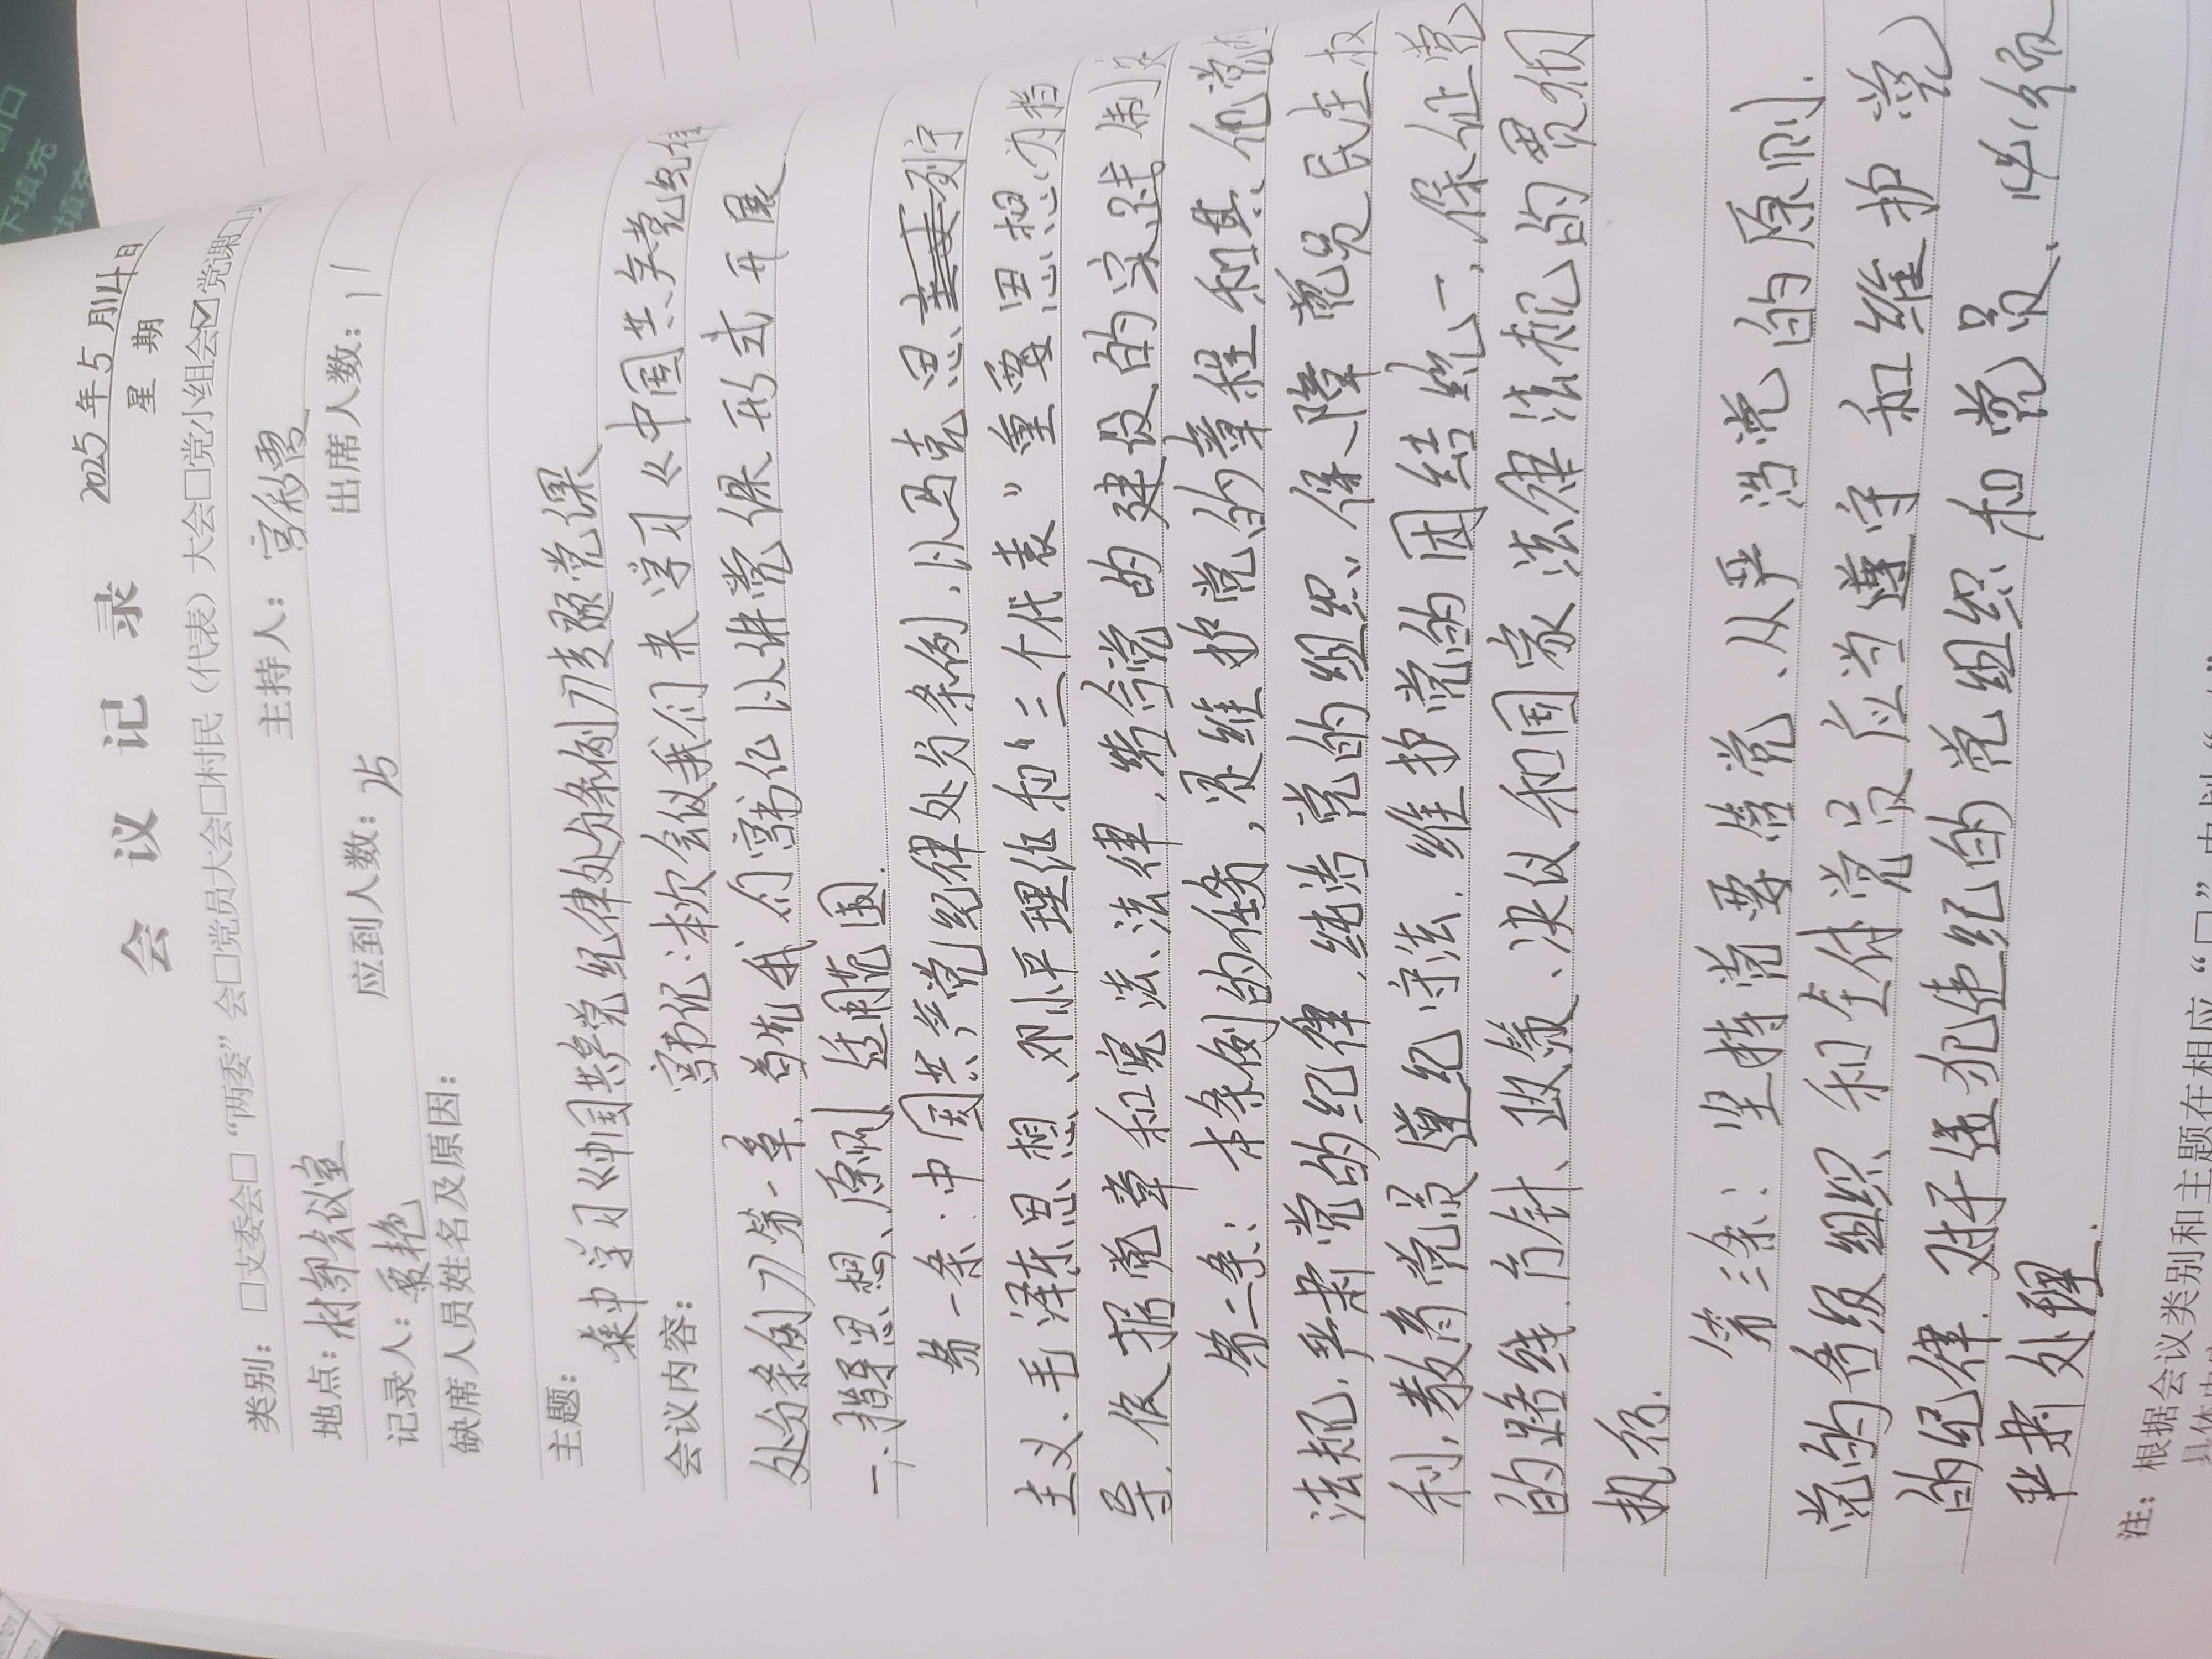 会 议 记 录
2025年5月14日
星 期
类别：□支委会□“两委”会□党员大会□村民（代表）大会□党小组会☑党课□
地点：村部会议室 主持人：宫彩霞
记录人： 艳 应到人数：25 出席人数：11
缺席人员姓名及原因：
主题：
集中学习《中国共产党纪律处分条例》专题党课
会议内容： 宫书记：本次会议我们来学习《中国共产党纪律
处分条例》第一章，首先我们宫书记以讲党课形式开展
一、指导思想、原则 适用范围.
第一条：中国共产党纪律处分条例，以马克思列宁
主义、毛泽东思想、邓小平理论和“三个代表”重要思想为指
导，依据党章和宪法、法律，结合党的建设的实践制定
第二条：本条例的任务，是维护党的章程和其他党内
法规，严肃党的纪律，纯洁党的组织，保障党员民主权
利，教育党员遵纪守法，维护党的团结统一，保证党
的路线、方针、政策、决议和国家法律法规的贯彻
执行.
第三条：坚持党要管党、从严治党的原则.
党的各级组织和全体党员应当遵守和维护党
的纪律.对于违犯党纪的党组织和党员，必须
严肃处理.
注：根据会议类别和主题在相应“□”中划“
下填充